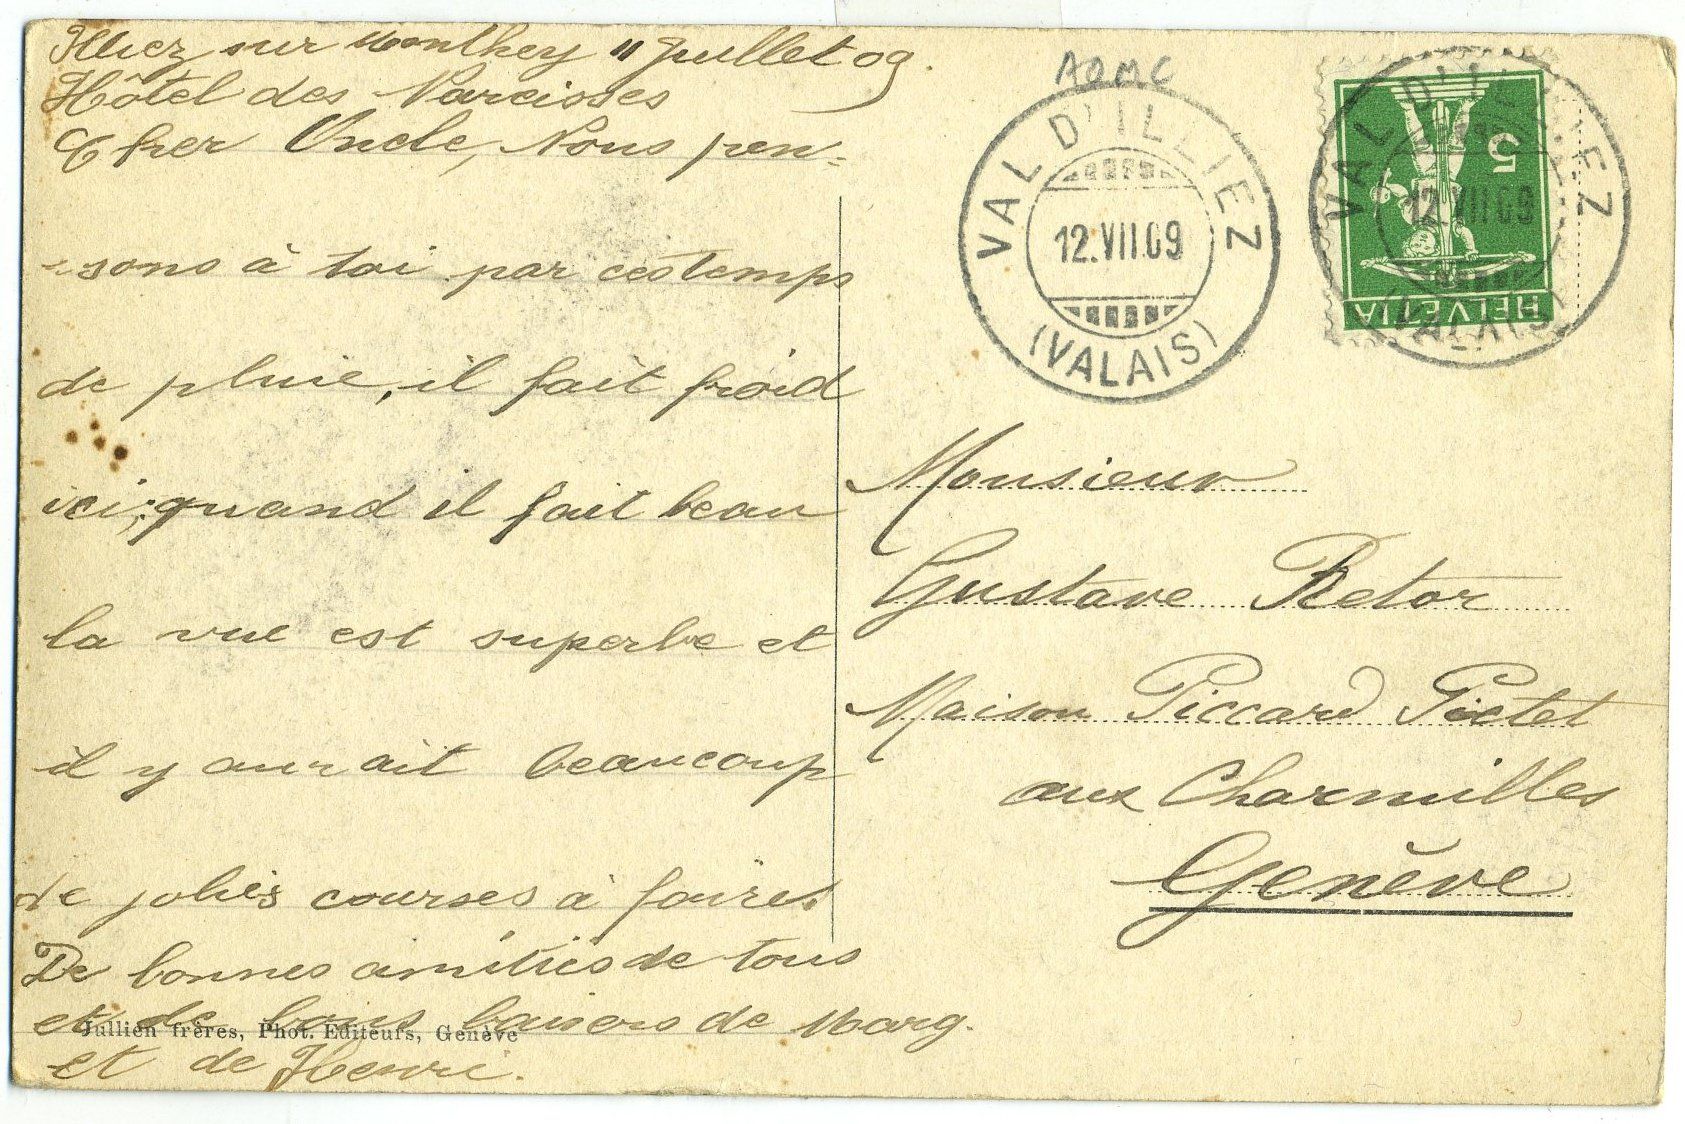 Illiez sur Monthey 11 Juillet 09.
Hôtel des Narcisses
Cher Oncle, Nous pen-
-sons à toi par ces temps
de pluie, il fait froid
ici; quand il fait beau
la vue est superbe et
il y aurait beaucoup
de jolies courses à faire.
De bonnes amitiés de tous
et de bons baisers de Marg.
et de Henri.
Jullien frères, Phot. Editeurs, Genève
VAL D'ILLIEZ
12.VII.09
(VALAIS)
5
HELVETIA
VAL D'ILLIEZ
12.VII.09
(VALAIS)
Monsieur
Gustave Retor
Maison Piccard Pictet
aux Charmilles
Genève